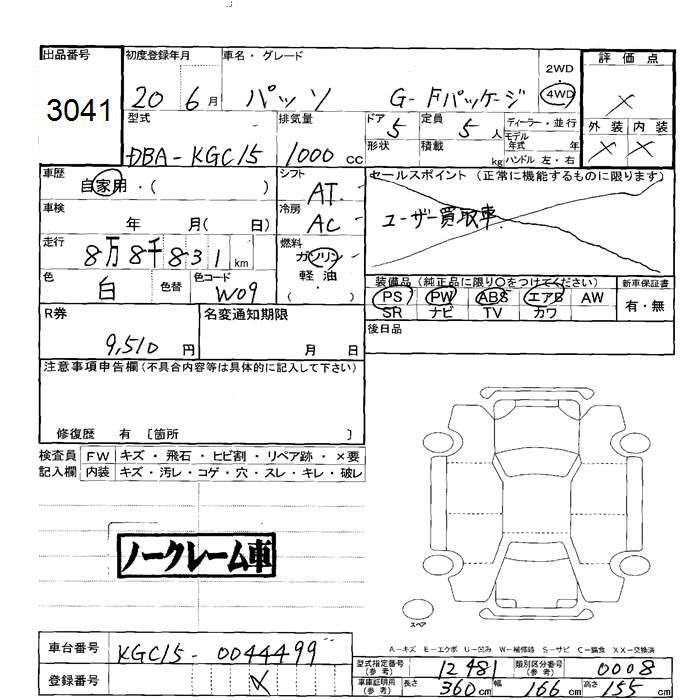 出品番号
3041
初度登録年月
20 6月
車名・グレード
パッソ G-Fパッケージ
2WD
・
4WD
評価点
×
外装 内装
× ×
型式
DBA-KGC15
排気量
1000 cc
ドア
5
形状
定員
5人
積載 kg
ディーラー・並行
モデル年式 年
ハンドル 左・右
車歴
自家用・( )
シフト
AT
セールスポイント (正常に機能するものに限ります)
ユーザー買取車
車検
年 月( 日)
冷房
AC
走行
8万8千831km
燃料
ガソリン
軽油
( )
色
白
色替
色コード
W09
装備品 (純正品に限り○をつけてください)
PS PW ABS エアB AW
SR ナビ TV カワ
新車保証書
有・無
R券
9,510円
名変通知期限
月 日
後日品
注意事項申告欄 (不具合内容等は具体的に記入して下さい)
修復歴 有 〔箇所 〕
検査員記入欄
FW キズ・飛石・ヒビ割・リペア跡・×要
内装 キズ・汚レ・コゲ・穴・スレ・キレ・破レ
ノークレーム車
スペア
A-キズ E-エクボ U-凹み W-補修跡 S-サビ C-腐食 XX-交換済
車台番号
KGC15-0044499
登録番号
型式指定番号(参考)
12481
類別区分番号(参考)
0008
車庫証明用(参考)
長さ 360cm 幅 166cm 高さ 155cm